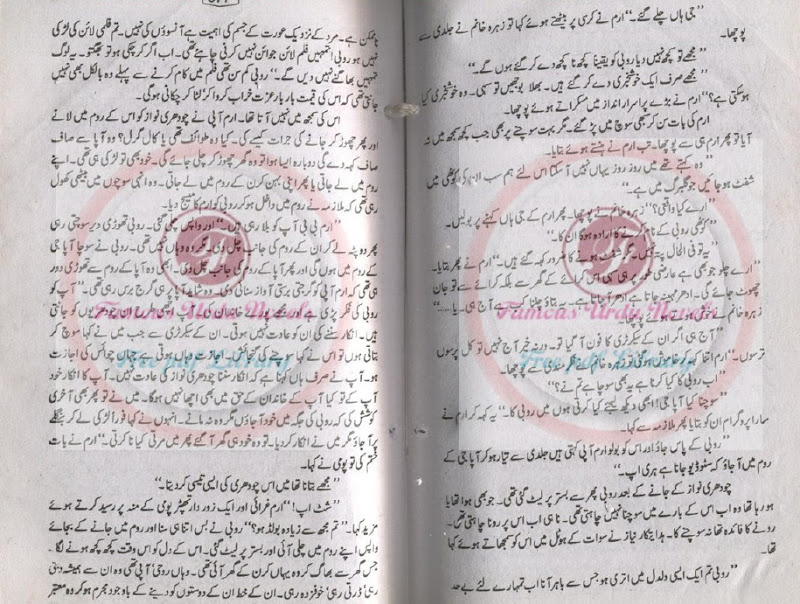 "جی ہاں چلے گئے۔" ارم نے کرسی پر بیٹھتے ہوئے کہا تو زہرہ خانم نے جلدی سے
پوچھا۔
"مجھے تو کچھ نہیں دیا روبی کو یقیناً کچھ نا کچھ دے کر گئے ہوں گے۔"
"مجھے صرف ایک خوشخبری دے کر گئے ہیں۔ بھلا بوجھیں تو سہی۔ وہ خوشخبری کیا
ہوسکتی ہے؟" ارم نے بڑے پراسرار انداز میں مسکراتے ہوئے پوچھا۔
ارم کی بات سن کر سبھی سوچ میں پڑ گئے۔ مگر بہت سوچنے پر بھی جب کچھ سمجھ میں نہ
آیا تو پھر ارم ہی سے پوچھا۔ تب ارم نے ہنستے ہوئے بتایا۔
"وہ کہتے تھے میں روز روز یہاں نہیں آسکتا اس لئے ہم سب کوٹھی میں
شفٹ ہوجائیں جو گلبرگ میں ہے۔"
"ارے کیا واقعی؟" زہرہ خانم نے پوچھا۔ پھر ارم کے جی ہاں کہنے پر بولیں۔
"کوٹھی روبی کے نام کرنے کا ارادہ ہوگا ان کا۔"
"یہ تو فی الحال پتہ نہیں۔ مگر شفٹ ہونے کا ضرور کہہ گئے ہیں۔" ارم نے پھر بتایا۔
"ارے چلو جو بھی ہے عارضی طور پر ہی سہی اس کرائے کے گھر سے بلکہ کرائے سے تو جان
چھوٹ جائے گی۔ ادھر مہینہ جاتا ہے ادھر آجاتا ہے۔ یہ بتاؤ چلنا کب ہے آج ہی۔ یا......"
زہرہ خانم نے خوش ہوتے ہوئے پوچھا۔
"آج ہی اگر ان کے سیکرٹری کا فون آگیا تو۔ ورنہ خیر آج نہیں تو کل پرسوں
ترسوں۔" ارم اتنا کہہ کر خاموش ہوگئی تو زہرہ خانم نے پھر جلدی سے پوچھا۔
"اب روبی کا کیا کرنا ہے یہ بھی سوچا ہے تم نے؟"
"سوچنا کیا آپا جی! ابھی دیکھ لیجئے کیا کرتی ہوں میں روبی کا۔" یہ کہہ کر ارم نے
سارا پروگرام ان کو بتایا پھر ملازمہ سے کہا۔
"روبی کے پاس جاؤ اور اس کو بولو ارم آپی کہتی ہیں جلدی سے تیار ہوکر آپا جی کے
روم میں آجاؤ کہ سٹوڈیو جانا ہے ہری اپ۔"
چودھری نواز کے جانے کے بعد روبی پھر سے بستر پر لیٹ گئی تھی۔ جو بھی ہوا تھا یا
ہو رہا تھا وہ اب اس کے بارے میں سوچنا نہیں چاہتی تھی۔ نا ہی اب اس پر رونا چاہتی تھی۔
رونے کا فائدہ تھا نہ سوچنے کا۔ ہدایتکار نیاز نے سوات کے ہوٹل میں اس کو سمجھاتے ہوئے کہا
تھا۔
"روبی تم ایک ایسی دلدل میں اتری ہو جس سے باہر آنا اب تمہارے لئے بے حد
ناممکن ہے۔ مرد کے نزدیک عورت کے جسم کی اہمیت ہے آنسوؤں کی نہیں۔ تم فلمی لائن کی لڑکی
نہیں ہو روبی! تمہیں فلم لائن جوائن نہیں کرنی چاہئے تھی۔ اب اگر کرچکی ہو تو بھگتو۔ یہ لوگ
تمہیں بھاگنے نہیں دیں گے۔" روبی کم سن تھی فلم میں کام کرنے سے پہلے وہ بالکل بھی نہیں
جانتی تھی کہ اس کی قیمت بار بار عزت خراب کروا کر لٹا کر چکانی ہوگی۔
اس کی سمجھ میں نہیں آتا تھا۔ ارم آپی نے چودھری نواز کو اس کے روم میں لانے
اور پھر چھوڑ کر جانے کی جرات کیسے کی۔ کیا وہ طوائف تھی یا کال گرل؟ وہ آپا سے صاف
صاف کہہ دے گی دوبارہ ایسا ہوا تو وہ گھر چھوڑ کر چلی جائے گی۔ خود بھی تو لڑکی ہی تھی۔ اپنے
روم میں لے جاتی یا پھر اپنی بہن کرن کے روم میں لے جاتی۔ وہ انہی سوچوں میں بیٹھی کھول
رہی تھی کہ ملازمہ نے روم میں داخل ہوکر روبی کو ارم کا میسج دیا۔
"ارم بی بی آپ کو بلا رہی ہیں۔" اور واپس چلی گئی۔ روبی تھوڑی دیر سوچتی رہی
پھر دوپٹہ لے کر ان کے روم کی جانب چل دی۔ مگر وہ وہاں نہیں تھی۔ روبی نے سوچا آپا جی
کے روم میں ہوں گی اور پھر آپا کے روم کی جانب چل دی۔ ابھی وہ آپا کے روم سے تھوڑی دور
ہی تھی کہ ارم آپی کی گرجتی برستی آواز سنائی دی۔ وہ شاید آپا پر ہی گرج برس رہی تھی۔ "آپ کو
روبی کی فکر پڑی ہے اور مجھے پورے خاندان کی۔ آپ ان چودھریوں کو جانتی
ہیں۔ انکار سننے کی ان کو عادت نہیں ہوتی۔ ان کے سیکرٹری سے جب میں نے کہا سوچ کر
بتاتی ہوں تو اس نے کہا سوچنے کی گنجائش۔ اجازت وہاں ہوتی ہے جہاں چوائس کی اجازت
ہو۔ آپ نے صرف ہاں کہنا ہے کہ انکار سننا چودھری نواز کی عادت نہیں۔ آپ کا انکار خود
آپ کے تو کیا آپ کے خاندان کے حق میں بھی اچھا نہیں ہوگا۔ میں نے پھر بھی آخری
کوشش کی کہ روبی کی جگہ میں خود آجاؤں مگر وہ نہ مانے۔ انہوں نے کہا فوراً لڑکی لے کر بنگلے
پر آجاؤ مگر میں نے انکار کردیا۔ تو وہ خود ہی گھر آگئے پھر میں مرتی کیا نا کرتی۔" ارم نے بات
ختم کی تو پومی نے کہا۔
"مجھے بتانا تھا میں اس چودھری کی ایسی تیسی کردیتا۔"
"شٹ اپ!" ارم غرائی اور ایک زور دار تھپڑ پومی کے منہ پر رسید کرتے ہوئے
مزید کہا۔ "تم مجھ سے زیادہ بولڈ ہو؟" روبی نے بس اتنا ہی سنا اور روم میں جانے کے بجائے
واپس اپنے روم میں چلی آئی اور بستر پر لیٹ گئی۔ اس کے دل کو اس وقت کچھ کچھ ہونے لگا۔
جس گھر سے بھاگ کر وہ یہاں کرن کے گھر آئی تھی۔ وہاں روحی آپی تھی وہ ان سے ہمیشہ دبتی
رہی' ڈرتی رہی' خوفزدہ رہی۔ ان کے خط ان کے دوستوں کو دینے کے باوجود مجرم ہوکر وہ معتبر
Famous Urdu Novels
Free pdf Library
Famous Urdu Novels
Free pdf Library